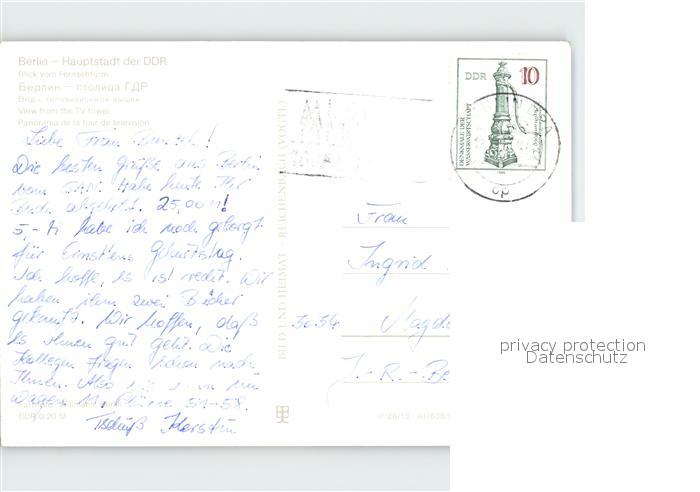 Berlin – Hauptstadt der DDR
Blick vom Fernsehturm
Берлин – столица ГДР
Вид с телевизионной вышки
View from the TV tower
Panorama de la tour de télévision
Liebe Frau
Die besten Grüße aus Berlin
vom Habe heute Ihr
Buch abgeholt. 25,00 M!
5,- M habe ich noch geborgt
für Geburtstag.
Ich hoffe, es ist recht. Wir
haben ihm zwei Bücher
gekauft. Wir hoffen, daß
es Ihnen gut geht. Die
Kollegen fragen schon nach
Ihnen. Also
Wagen 11, Plätze 51-58.
DDR 0,20 M
Tschüß Kerstin
BILD UND HEIMAT REICHENBACH (VOGTL)
DDR 10
DENKMALE DER
WASSERWIRTSCHAFT
Frau
Ingrid
3034 Magd
J.-R.-Be
privacy protection
Datenschutz